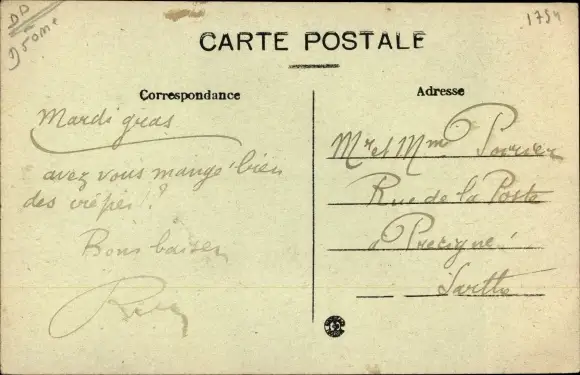 DD
Drome
1754
CARTE POSTALE
Correspondance
Adresse
Mardi gras
avez vous mangé bien
des crêpes!?
Bons baisers
Mr et Mme Poirier
Rue de la Poste
à Precigné
Sarthe